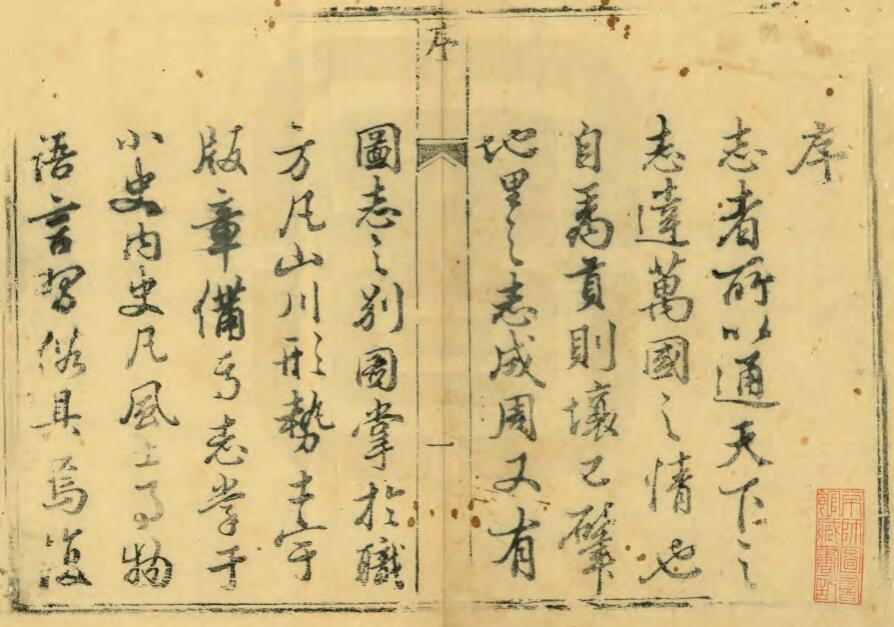 序
志者所以通天下之
志達萬國之情也
自禹貢則壤已肇
地里之志成周又有
序
一
圖志之别圖掌於職
方凡山川形勢土宇
版章備焉志掌于
小史内史凡風土事物
語言習俗具焉後